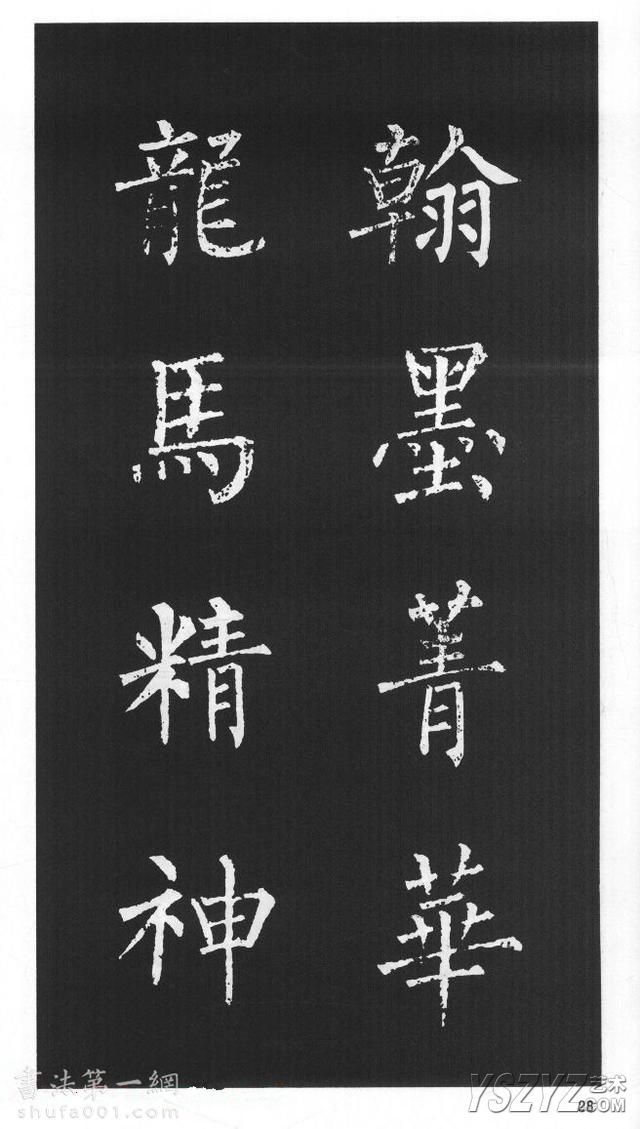 翰墨菁華
龍馬精神
書法第一網
shufa001.com
YSZYZ艺术
.COM
28